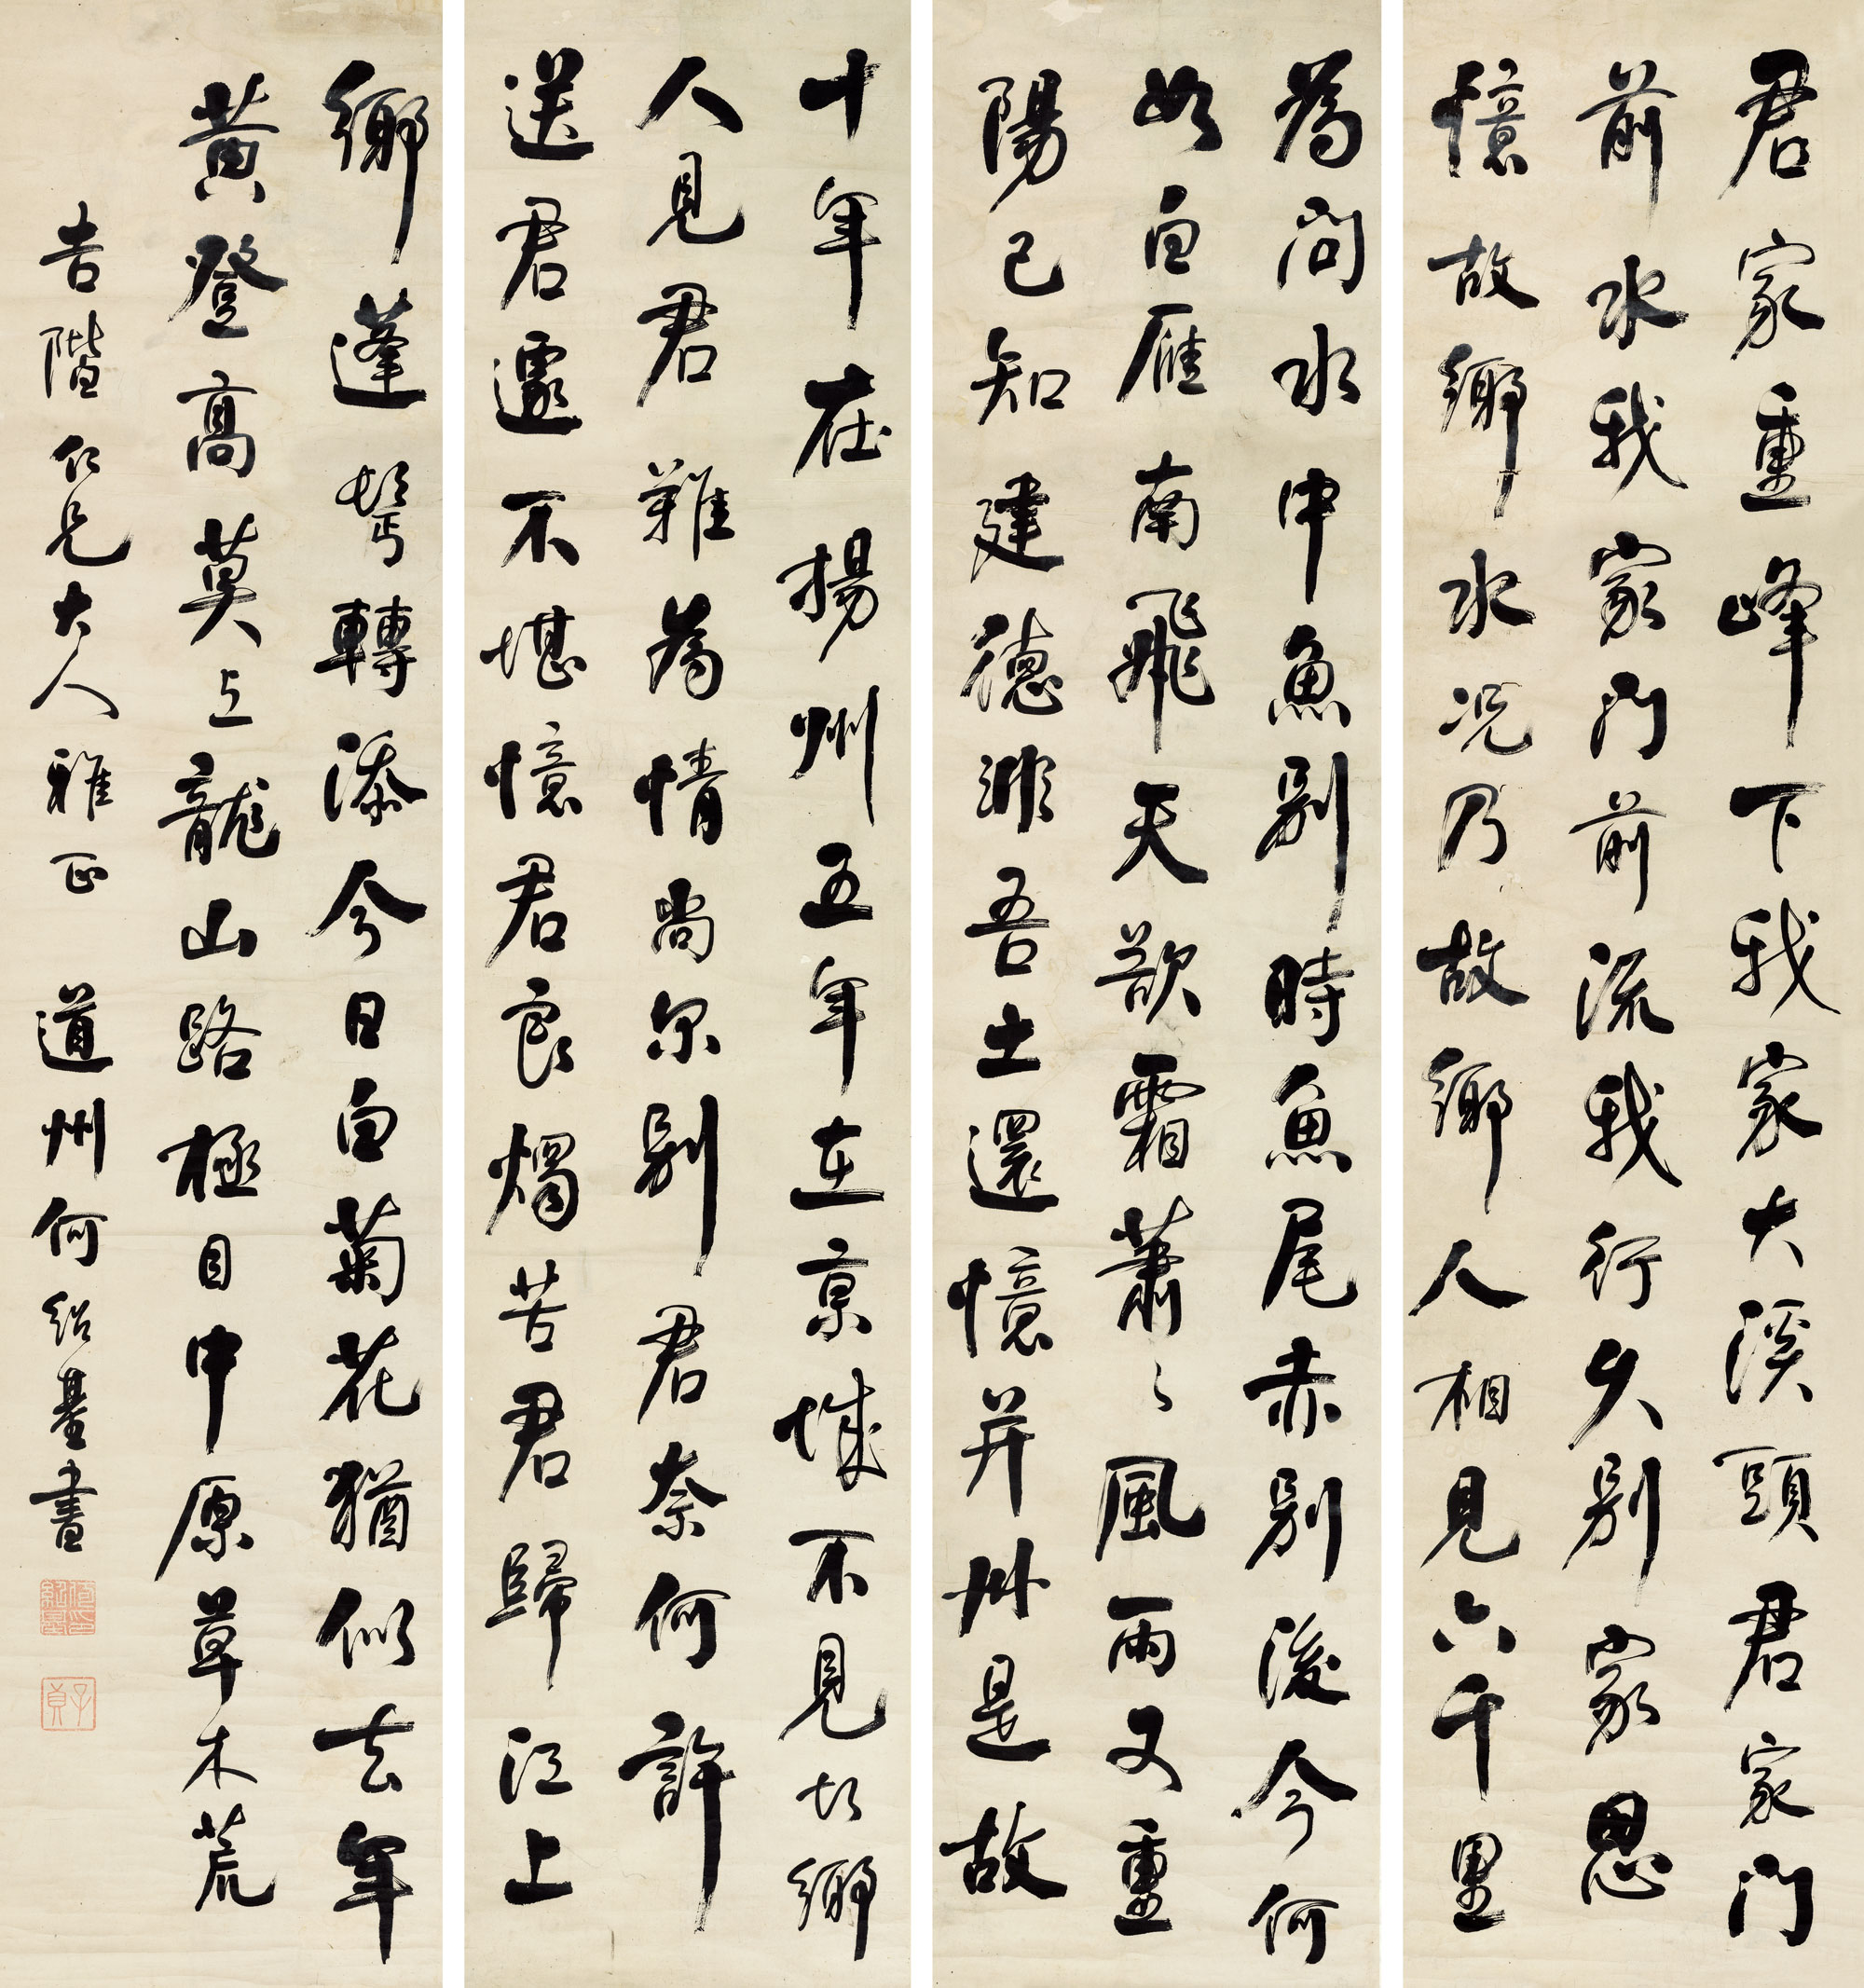 君家重峰下我家大溪頭君家門
前水我家門前流我行久別家思
憶故鄉水況乃故鄉人相見六千里
為問水中魚別時魚尾赤別後今何
如白雁南飛天欲霜蕭〻風雨又重
陽已知建德非吾土還憶并州是故
十年在揚州五年在京城不見故鄉
人見君難為情尚尔別君奈何許
送君遽不堪憶君良燭苦君歸江上
鄉蓬鬢轉添今日白菊花猶似去年
黃登高莫上龍山路極目中原草木荒
吉階仁兄大人雅正 道州何紹基書
何紹基印
子貞